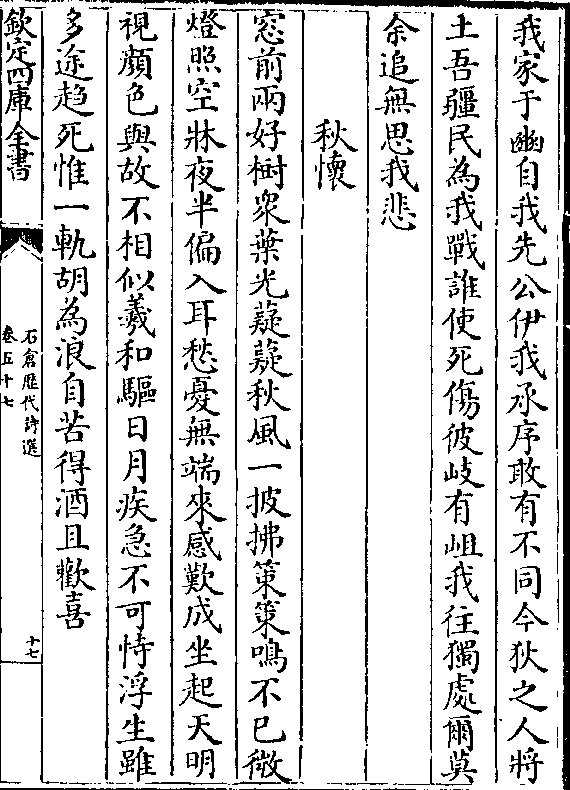 我家于豳自我先公伊我承序敢有不同今狄之人將
土吾疆民為我戰誰使死傷彼岐有岨我往獨處爾莫
余追無思我悲
秋懷
窓前兩好樹衆葉光薿薿秋風一披拂策策鳴不已微
燈照空牀夜半偏入耳愁憂無端來感歎成坐起天明
視顔色與故不相似羲和驅日月疾急不可恃浮生雖
多途趋死惟一軌胡為浪自苦得酒且歡喜
欽定四庫全書
石倉歴代詩選
卷五十七
十七